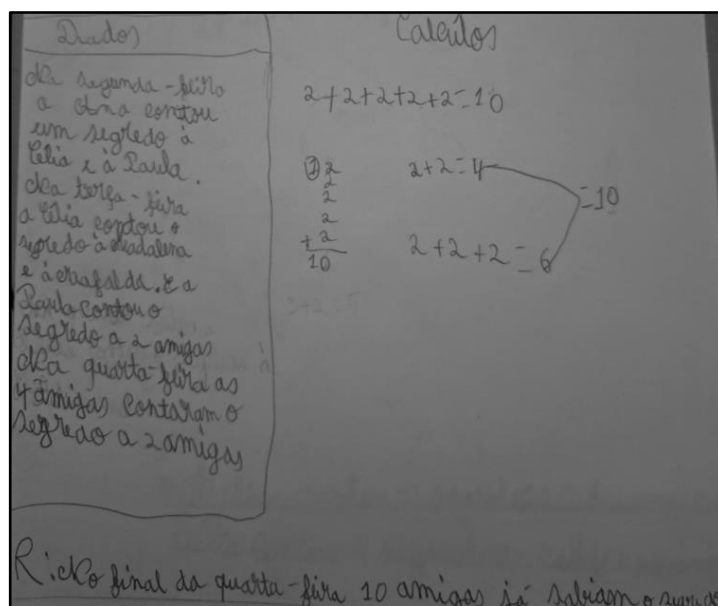 Dados
Na segunda-feira
a Ana contou
um segredo à
Célia e à Paula.
Na terça-feira
a Célia contou o
segredo à Madalena
e à Mafalda. E a
Paula contou o
segredo a 2 amigas
Na quarta-feira as
4 amigas contaram o
segredo a 2 amigas
Cálculos
2+2+2+2+2=10
2
2
2
2
+2
10
2+2=4
2+2+2=6
=10
2+2=5
R: No final da quarta-feira 10 amigas já sabiam o segredo